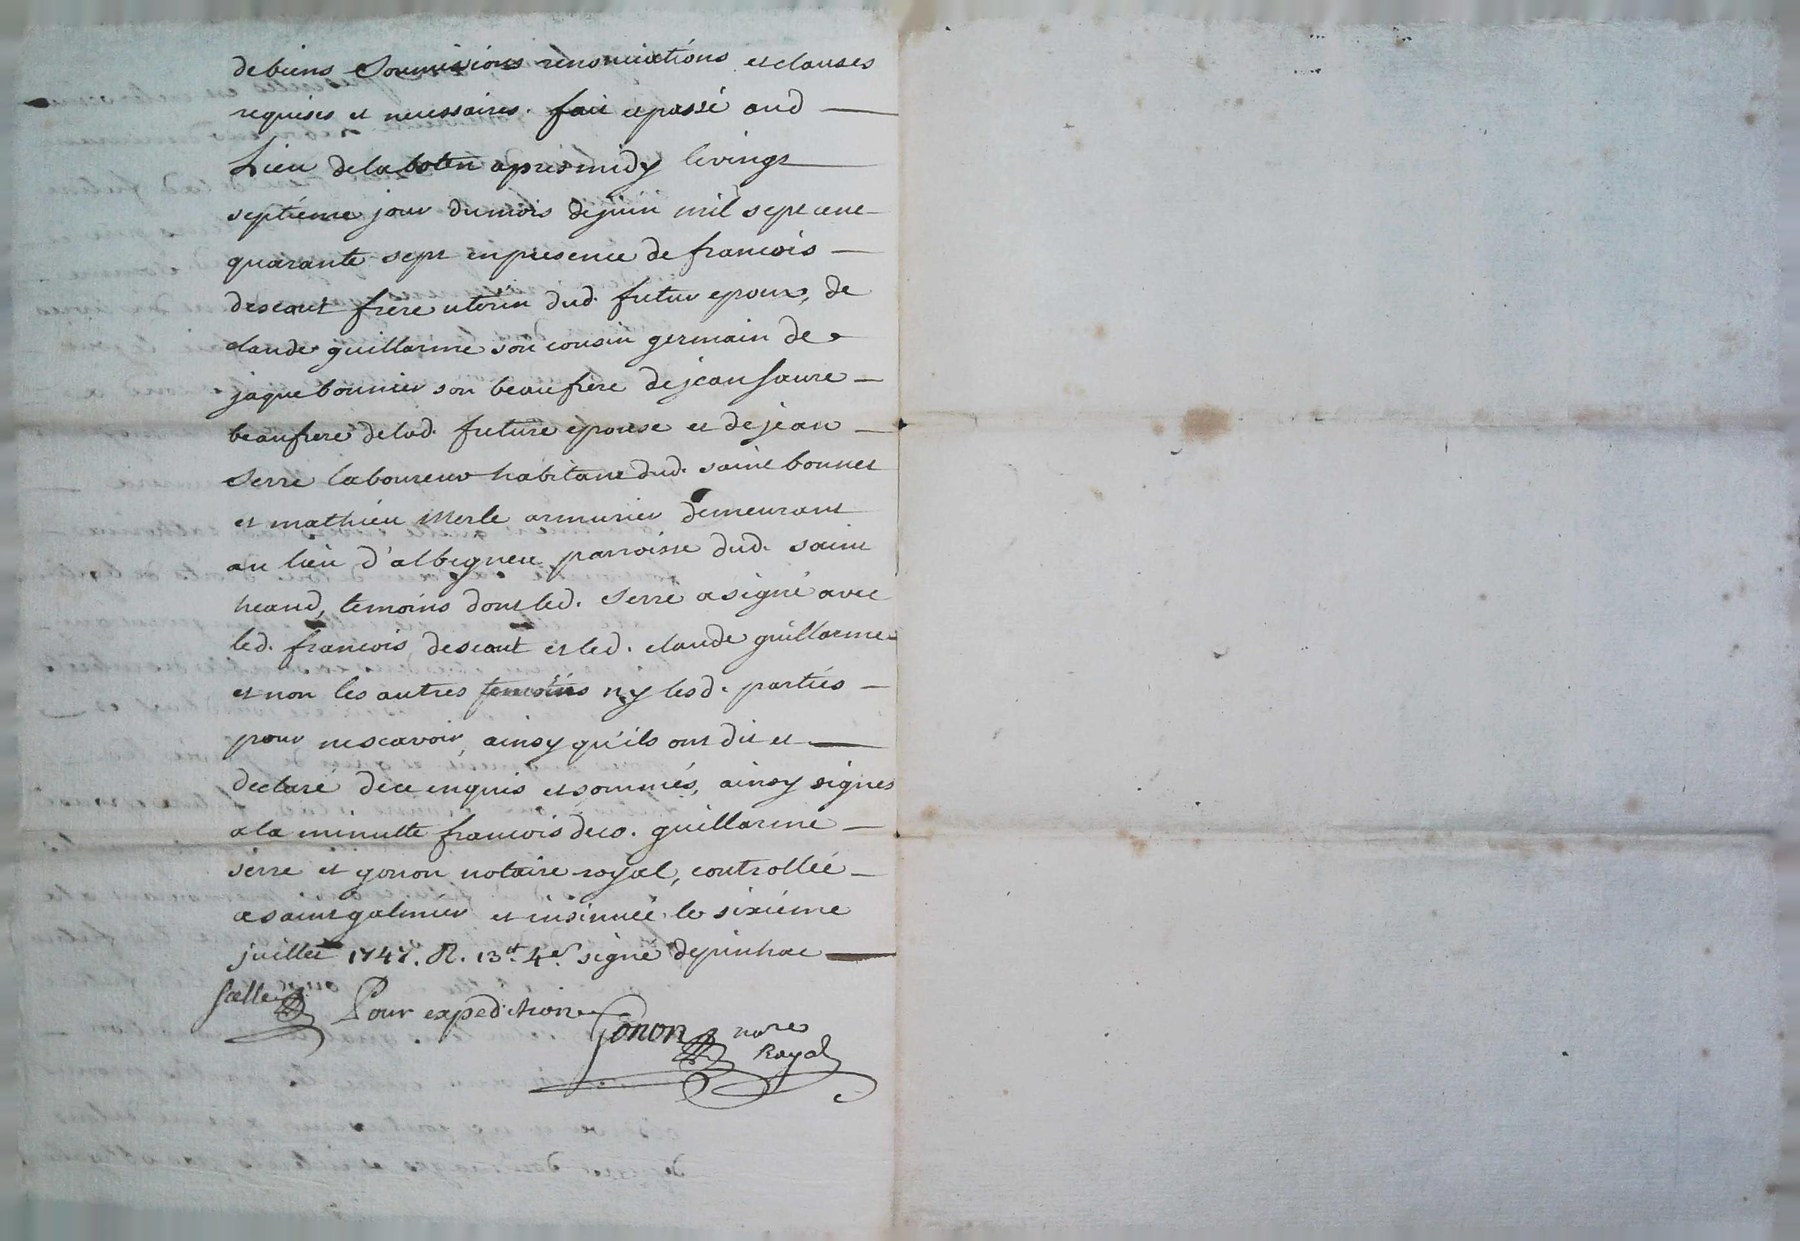 de biens Soumissions renonciations et clauses
requises et necessaires. fait et passé aud
Lieu de la apres midy le vingt
septieme jour du mois de juin mil sept cent
quarante sept en presence de francois
descout frere uterin dud. futur epoux, de
claude guillarme son cousin germain de
jaque bonnier son beaufrere de jean faure
beaufrere de lad. future epouse et de jean
Serre laboureur habitant dud. saint bonnet
et mathieu Merle armurier demeurant
au lieu d'albigneu parroisse dud. saint
heand, temoins dont led. Serre a signé avec
led. francois descout et led. claude guillarme
et non les autres temoins ny lesd. parties
pour ne scavoir, ainsy qu'ils ont dit et
declaré de ce enquis et sommés, ainsy signés
a la minutte francois deco. guillarme
serre et gonon notaire royal, controllée
a saint galmier et insinuée le sixieme
juillet 1747. R. 13# 4s signé depinhac
Pour expedition
Gonon nore
Royal